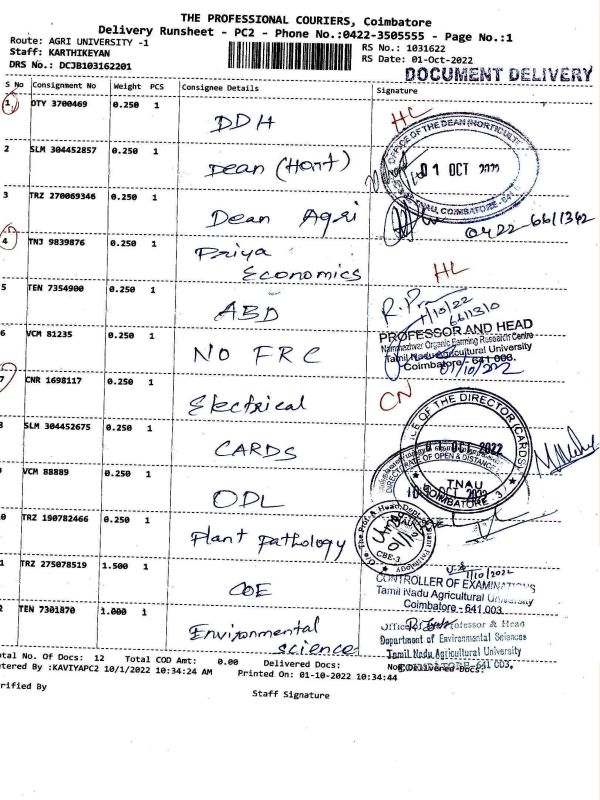 THE PROFESSIONAL COURIERS, Coimbatore
Delivery Runsheet - PC2 - Phone No.:0422-3505555 - Page No.:1
Route: AGRI UNIVERSITY -1
RS No.: 1031622
Staff: KARTHIKEYAN
RS Date: 01-Oct-2022
DRS No.: DCJB103162201
DOCUMENT DELIVERY
S No Consignment No Weight PCS Consignee Details Signature
1 OTY 3700469 0.250 1 DDH HL
2 SLM 304452857 0.250 1 Dean (Hort)
OFFICE OF THE DEAN (HORTICULT
01 OCT 2022
TNAU, COIMBATORE
3 TRZ 270069346 0.250 1 Dean Agri
0422-6611342
4 TNJ 9839876 0.250 1 Priya
Economics HL
5 TEN 7354900 0.250 1 ABD
1/10/22
6611310
6 VCM 81235 0.250 1 NO FRC
PROFESSOR AND HEAD
Nammazhwar Organic Farming Research Centre
Tamil Nadu Agricultural University
Coimbatore - 641 003.
01/10/2022
7 CNR 1698117 0.250 1 Electrical CN
8 SLM 304452675 0.250 1 CARDS
OF THE DIRECTOR (CARDS)
OCT 2022
TNAU
COIMBATORE
9 VCM 88889 0.250 1 ODL
DIRECTORATE OF OPEN & DISTANCE
0 TRZ 190782466 0.250 1 Plant pathology
CBE-3
1 TRZ 275078519 1.500 1 COE
1/10/2022
CONTROLLER OF EXAMINATIONS
Tamil Nadu Agricultural University
Coimbatore - 641 003.
2 TEN 7301870 1.000 1 Environmental
science
Professor & Head
Department of Environmental Sciences
Tamil Nadu Agricultural University
COIMBATORE-641 003.
otal No. Of Docs: 12 Total COD Amt: 0.00 Delivered Docs: Non Delivered Docs:
tered By :KAVIYAPC2 10/1/2022 10:34:24 AM Printed On: 01-10-2022 10:34:44
rified By
Staff Signature